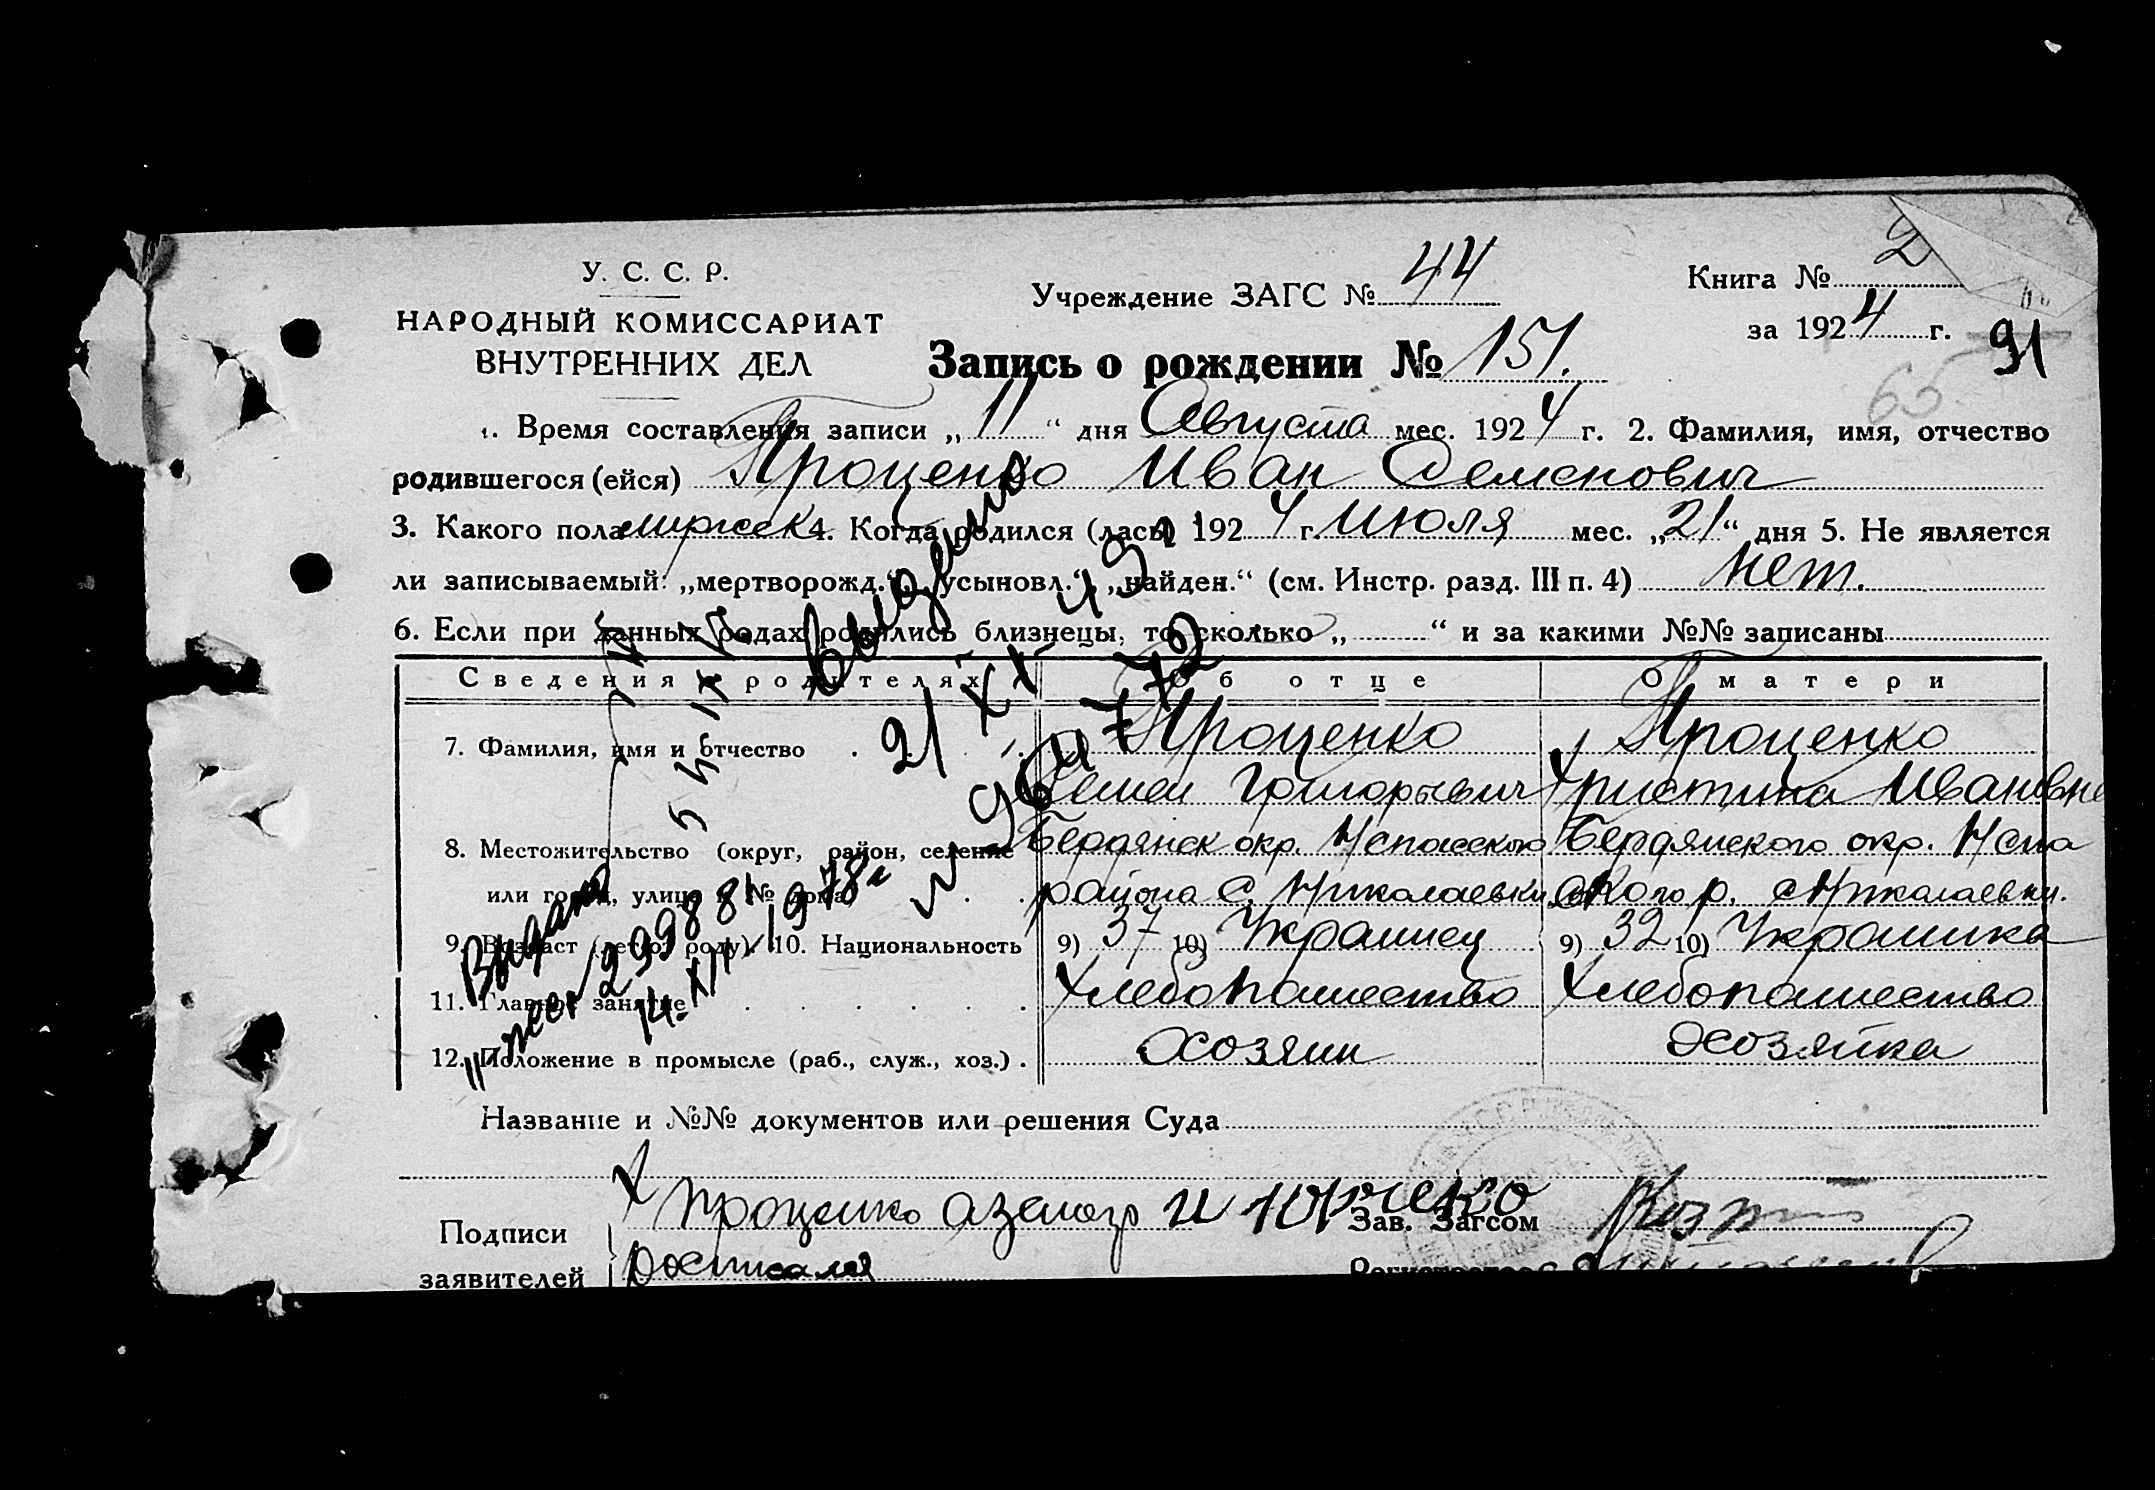 У. С. С. Р.
НАРОДНЫЙ КОМИССАРИАТ
ВНУТРЕННИХ ДЕЛ
Учреждение ЗАГС № 44
Книга № 2
за 1924 г.
91
65
Запись о рождении № 151.
1. Время составления записи „11“ дня Августа мес. 1924 г. 2. Фамилия, имя, отчество
родившегося (ейся) Проценко Иван Семенович
3. Какого пола мужск 4. Когда родился (лась) 1924 г. Июля мес. „21“ дня 5. Не является
ли записываемый: „мертворожд.“ „усыновл.“ „найден.“ (см. Инстр. разд. III п. 4) Нет.
6. Если при данных родах родились близнецы, то сколько „ “ и за какими №№ записаны
Сведения о родителях Об отце О матери
7. Фамилия, имя и отчество Проценко Проценко
Семен Григорьевич Христина Ивановна
8. Местожительство (округ, район, селение Бердянск окр. Успасского Бердянского окр. Успа
или город, улица и № дома) района с. Николаевки ского р. с Николаевки.
9. Возраст (летю, роду). 10. Национальность 9) 37 10) Украинец 9) 32 10) Украинка
11. Главное занятие Хлебопашество Хлебопашество
12. Положение в промысле (раб., служ., хоз.) Хозяин Хозяйка
Название и №№ документов или решения Суда
Подписи
заявителей
Х Проценко
росписался
Зав. Загсом
выдано
21 XI 49
Выдано
299881
14. XII 1978г